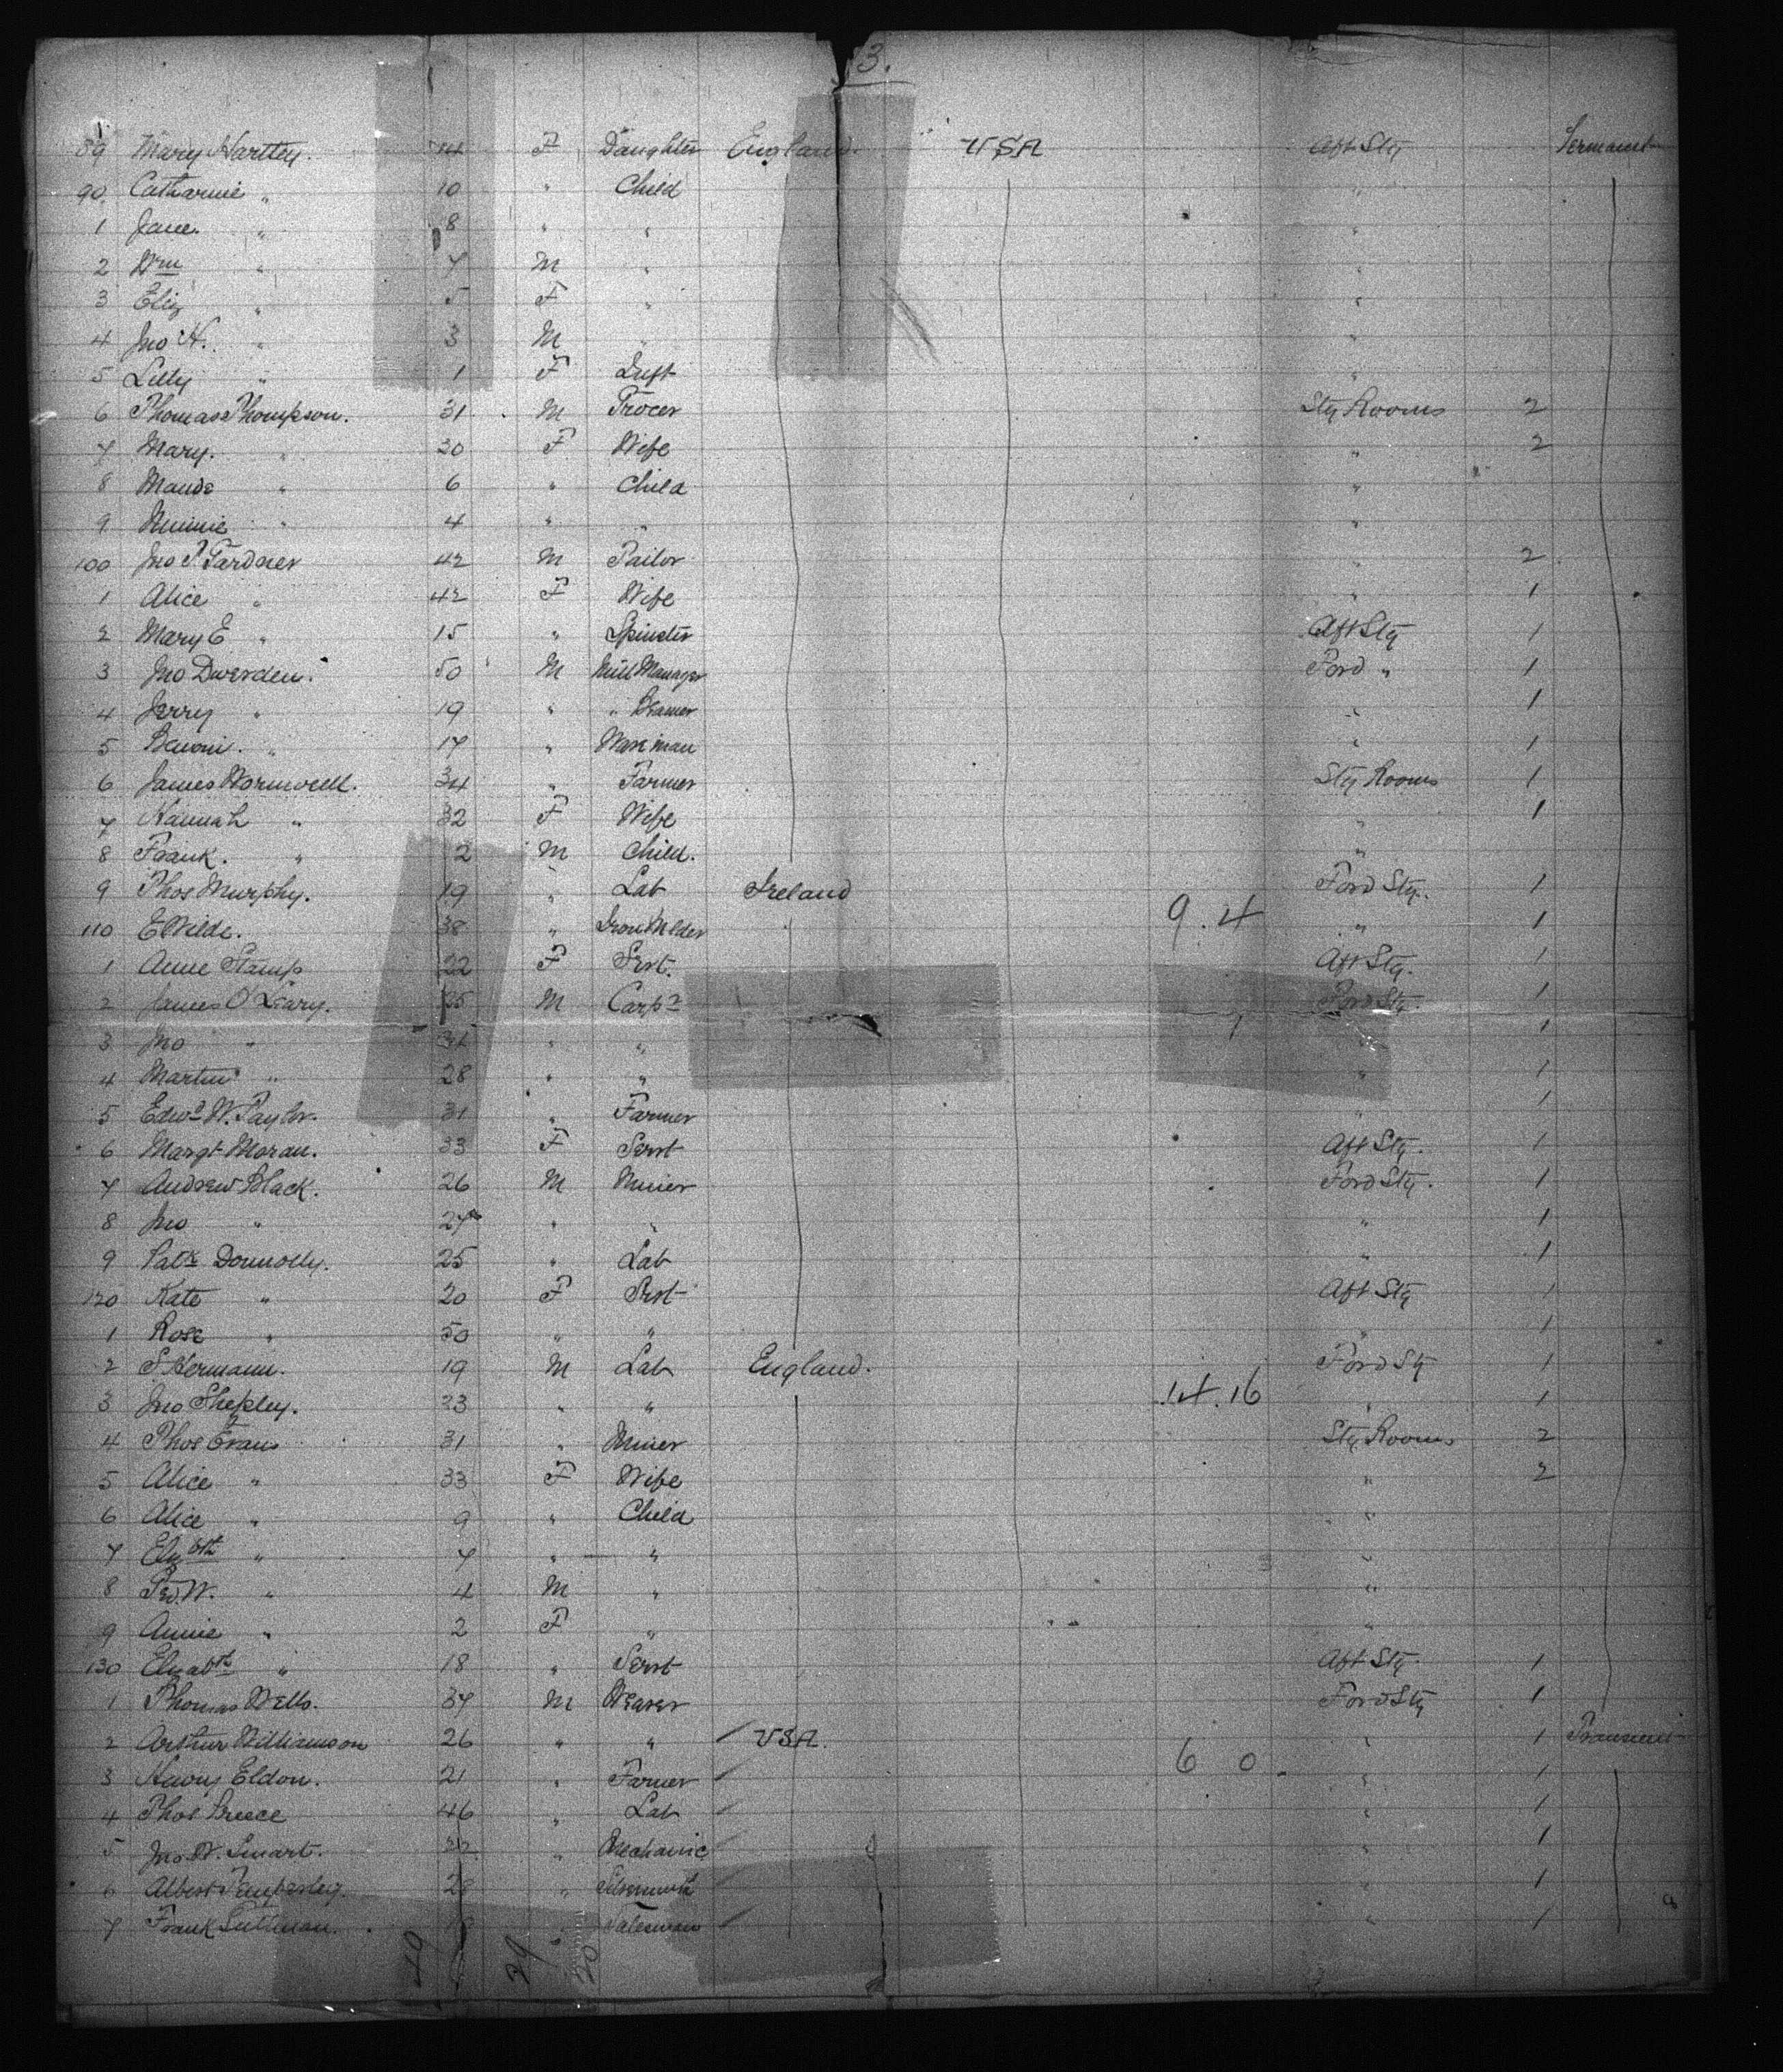 3.
89 Mary Hartley. F Daughter England. " USA Aft Stg
90. Catharine " 10 " Child "
1 Jane. " 8 " " "
2 Wm " 7 M " "
3 Eliz " 5 F " "
4 Jno H. " 3 M " "
5 Lilly " 1 F Inft "
6 Thomas Thompson. 31 M Grocer Stg Rooms 2
7 Mary. " 30 F Wife " 2
8 Maude " 6 " Child "
9 Minnie " 4 " " "
100 Jno P. Gardner 42 M Tailor " 2
1 Alice " 42 F Wife " 1
2 Mary E " 15 " Spinster Aft Stg 1
3 Jno Dwerden. 50 M Mill Manager Ford " 1
4 Jerry " 19 " " " 1
5 Benoni. " 17 " Wareman " 1
6 James Wormwell. 34 " Farmer Stg Rooms 1
7 Hannah " 32 F Wife " 1
8 Frank. " 2 M Child. "
9 Thos Murphy. 19 " Lab Ireland Ford Stg. 1
110 E Wilde. 38 " Iron Mlder 9.4 " 1
1 Anne Stamp 22 F Srvt. Aft Stg. 1
2 James O'Leary. 25 M Carpr Ford Stg. 1
3 Jno " " " 1 " 1
4 Martin " 28 " " " 1
5 Edwd W. Taylor. 31 " Farmer " 1
6 Margt Moran. 33 F Servt Aft Stg. 1
7 Andrew Black. 26 M Miner Ford Stg. 1
8 Jno " 27 " " " 1
9 Patk Donnolly. 25 " Lab " 1
120 Kate " 20 F Srvt Aft Stg 1
1 Rose " 50 " " " 1
2 S Hermann. 19 M Lab England. Ford Stg 1
3 Jno Shepley. 23 " " 14.16 " 1
4 Thos Evans 31 " Miner Stg Rooms 2
5 Alice " 33 F Wife " 2
6 Alice " 9 " Child "
7 Elizbth " 7 " " "
8 Geo. W. " 4 M " "
9 Annie " 2 F " "
130 Elizabth " 18 " Servt Aft Stg. 1
1 Thomas Wells. 37 M Weaver Ford Stg 1
2 Arthur Williamson 26 " " USA. " 1
3 Harry Eldon. 21 " Farmer 6 0 " 1
4 Thos Breece 46 " Lab " 1
5 Jno. W. Smart. " Mechanic " 1
6 Albert " Silversmith " 1
7 Frank " Salesman " 1